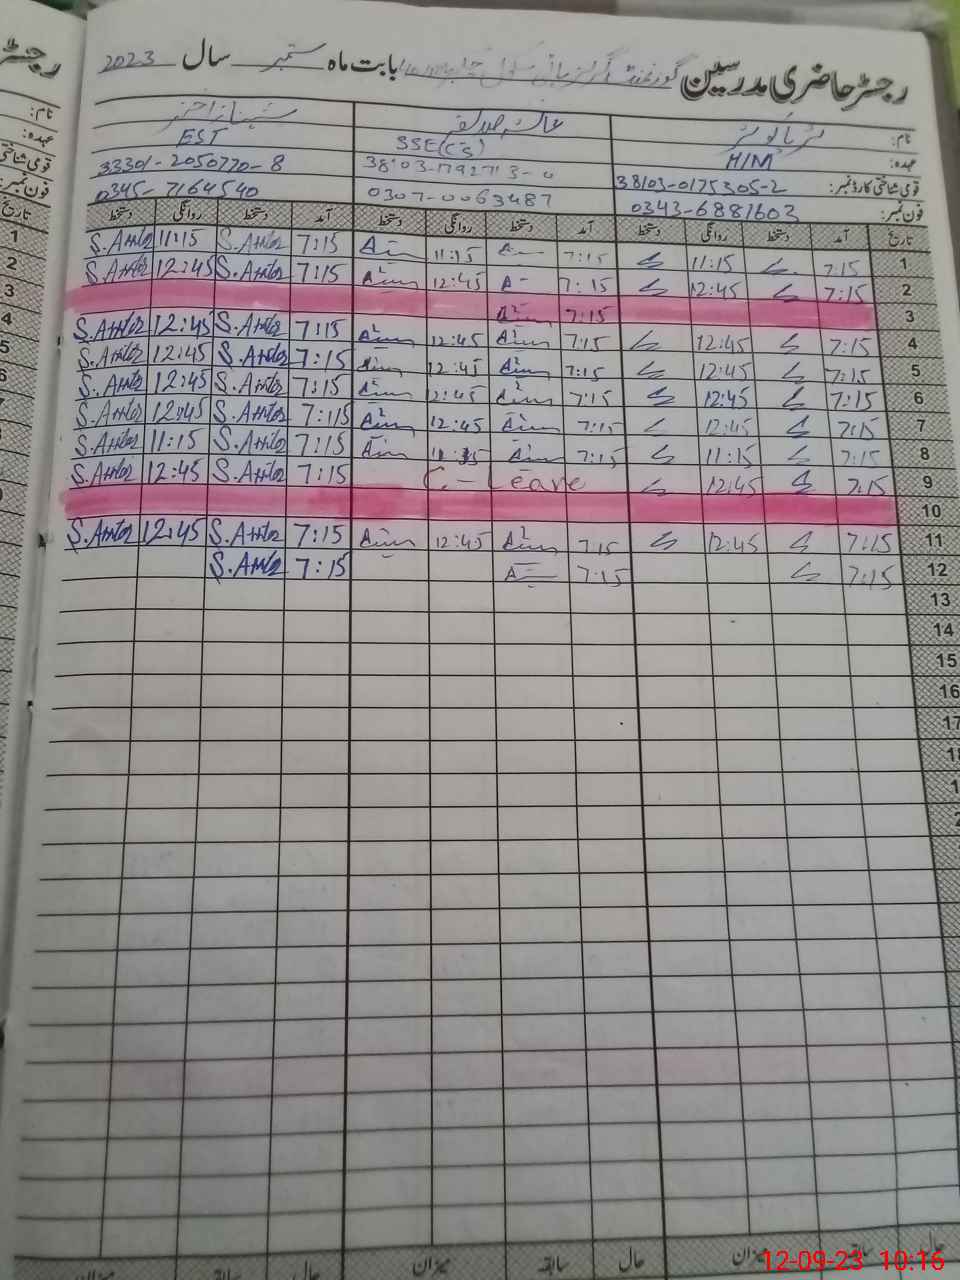 رجسٹر حاضری مدرسین گورنمنٹ گرلز ہائی سکول بابت ماہ ستمبر سال 2023
نام: عائشہ شہناز اختر
عہدہ: H/M SSE(CS) EST
قومی شناختی کارڈ نمبر: 38103-0175305-2 33301-2050770-8
فون نمبر: 0343-6881602 0307-0063487 0345-7164540
تاریخ آمد دستخط روانگی دستخط آمد دستخط روانگی دستخط آمد دستخط روانگی دستخط
1 7:15 11:15 7:15 11:15 7:15 S.Akhtar 11:15 S.Akhtar
2 7:15 12:45 7:15 12:45 7:15 S.Akhtar 12:45 S.Akhtar
3 7:15
4 7:15 12:45 7:15 12:45 7:15 S.Akhtar 12:45 S.Akhtar
5 7:15 12:45 7:15 12:45 7:15 S.Akhtar 12:45 S.Akhtar
6 7:15 12:45 7:15 12:45 7:15 S.Akhtar 12:45 S.Akhtar
7 7:15 12:45 7:15 12:45 7:15 S.Akhtar 12:45 S.Akhtar
8 7:15 11:15 7:15 11:15 7:15 S.Akhtar 11:15 S.Akhtar
9 7:15 12:45 C-Leave 7:15 S.Akhtar 12:45 S.Akhtar
10
11 7:15 12:45 7:15 12:45 7:15 S.Akhtar 12:45 S.Akhtar
12 7:15 7:15 7:15 S.Akhtar
13
14
15
16
17
18
حال سابقہ میزان حال سابقہ میزان حال سابقہ میزان
12-09-23 10:16